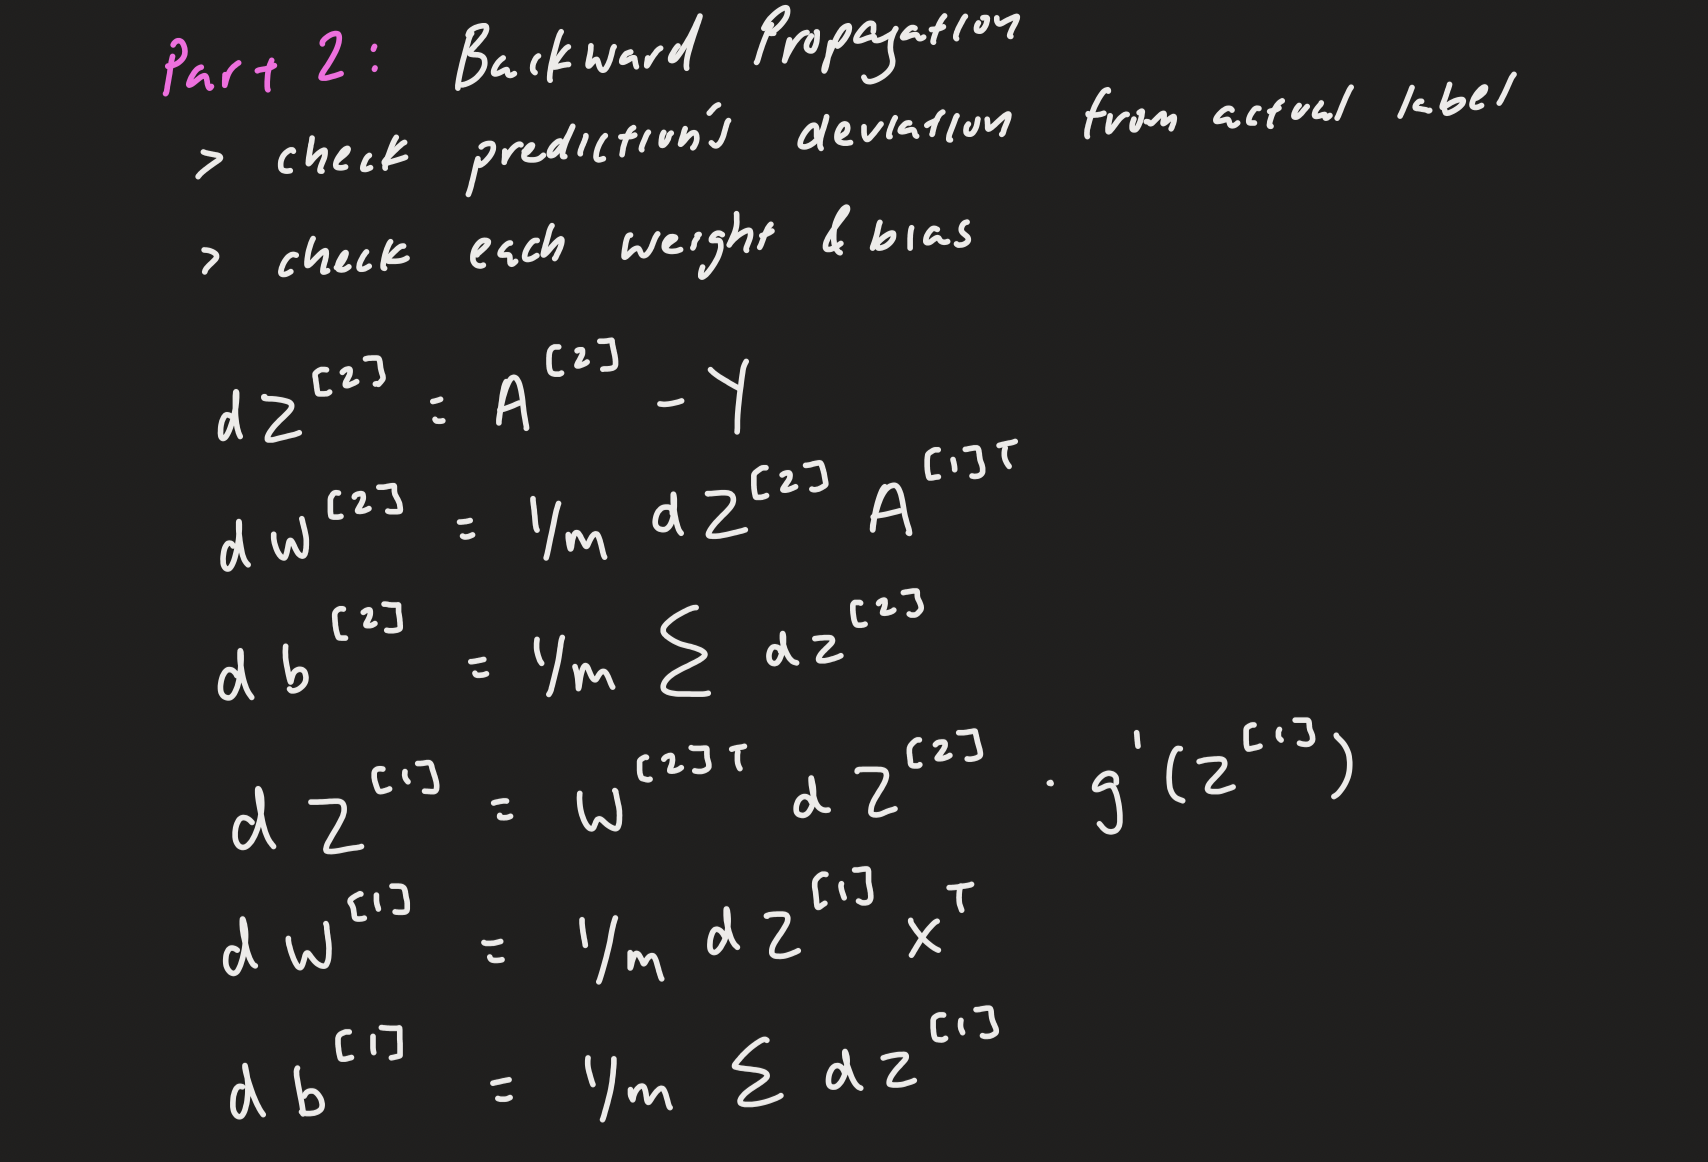 Part 2: Backward Propagation
> check prediction's deviation from actual label
> check each weight & bias
dZ^[2] = A^[2] - Y
dW^[2] = 1/m dZ^[2] A^[1]T
db^[2] = 1/m Σ dZ^[2]
dZ^[1] = W^[2]T dZ^[2] · g'(Z^[1])
dW^[1] = 1/m dZ^[1] X^T
db^[1] = 1/m Σ dZ^[1]